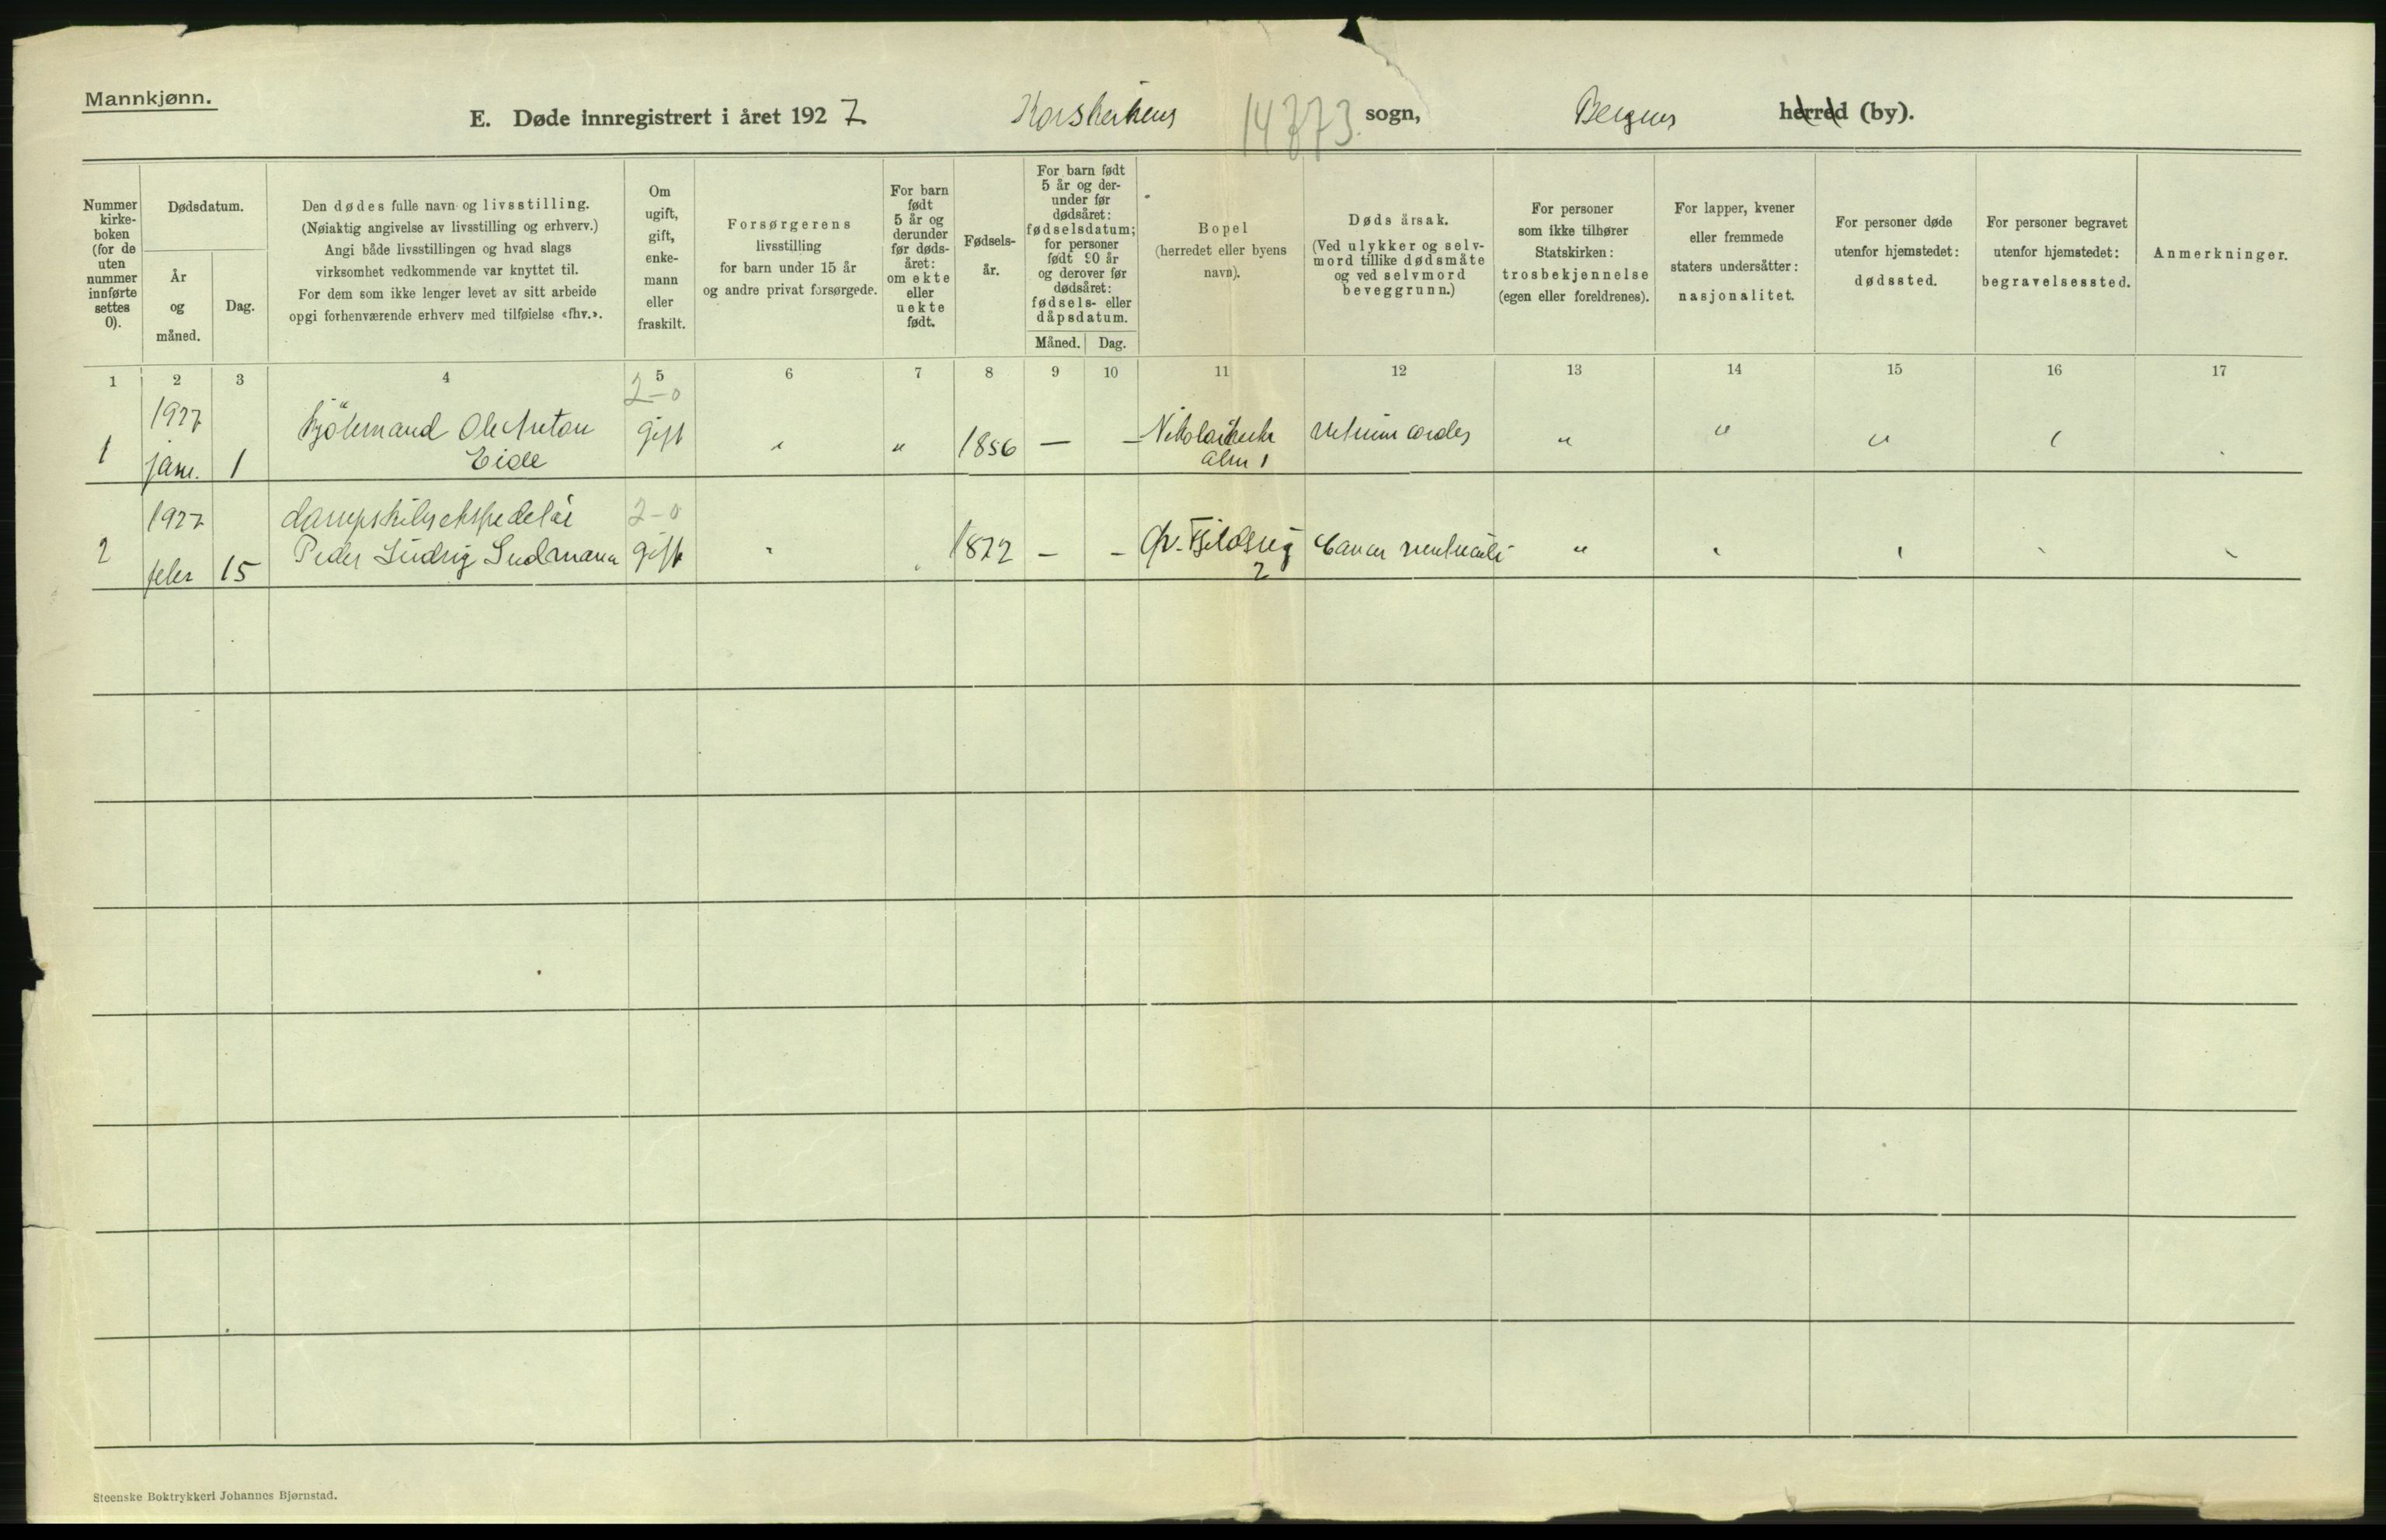 Mannkjønn.
E. Døde innregistrert i året 1927 Korskirkens 14773. sogn, Bergens herred (by).
Nummer kirke- boken (for de uten nummer innførte settes 0).
Dødsdatum.
År og måned.
Dag.
Den dødes fulle navn og livsstilling.
(Nøiaktig angivelse av livsstilling og erhverv.)
Angi både livsstillingen og hvad slags
virksomhet vedkommende var knyttet til.
For dem som ikke lenger levet av sitt arbeide
opgi forhenværende erhverv med tilføielse «fhv.».
Om ugift, gift, enke- mann eller fraskilt.
Forsørgerens
livsstilling
for barn under 15 år
og andre privat forsørgede.
For barn født 5 år og derunder før døds- året: om ekte eller uekte født.
Fødsels- år.
For barn født 5 år og der- under før dødsåret: fødselsdatum; for personer født 90 år og derover før dødsåret: fødsels- eller dåpsdatum.
Måned. Dag.
Bopel
(herredet eller byens
navn).
Dødsårsak.
(Ved ulykker og selv-
mord tillike dødsmåte
og ved selvmord
beveggrunn.)
For personer
som ikke tilhører
Statskirken:
trosbekjennelse
(egen eller foreldrenes).
For lapper, kvener
eller fremmede
staters undersåtter:
nasjonalitet.
For personer døde
utenfor hjemstedet:
dødssted.
For personer begravet
utenfor hjemstedet:
begravelsessted.
Anmerkninger.
1 2 3 4 5 6 7 8 9 10 11 12 13 14 15 16 17
2-0
1927
Ole Anton gift
1 jan. 1 Eide " " 1856 — — alm 1 cordis " " " "
1927 dampskibsekspeditør 2-0
2 Peder Ludvig gift " 1872 — — 2 Cancer ventriculi "
febr 15
Steenske Boktrykkeri Johannes Bjørnstad.